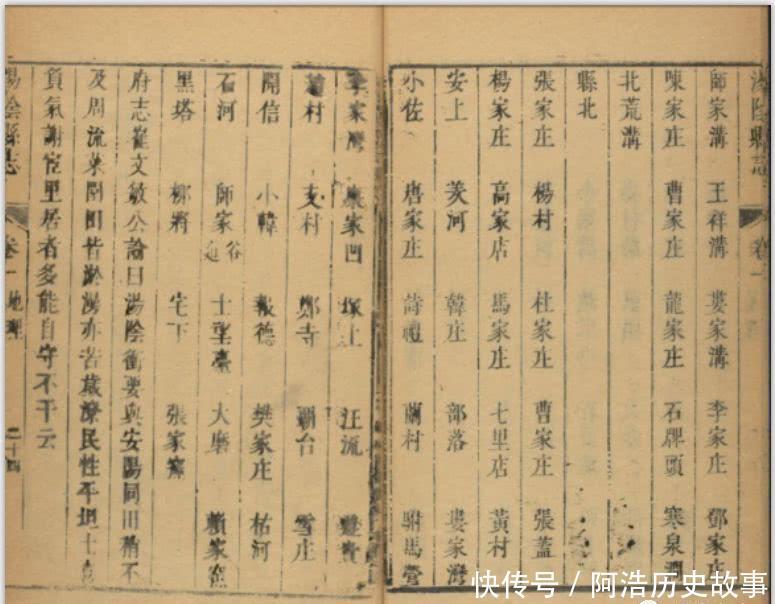 湯陰縣志 卷一
師家溝 王祥溝 婁家溝 李家庄 鄧家庄
陳家庄 曹家庄 龍家庄 石牌頭 寒泉
北荒溝
縣北
張家庄 楊村 杜家庄 曹家庄 張蓋
楊家庄 高家店 馬家庄 七里店 黃村
安上 羑河 韓庄 部落 婁家灣
小佐 唐家庄 詩禮 繭村 駙馬營
李家灣 家凹 塚上 汪流
村 支村 鄭寺 霸台 雪庄
開信 小韓 報德 樊家庄 枯河
石河 師家 近谷 士望臺 大磨 賴家
黑塔 柳將 宅下 張家
府志崔文敏公論曰湯陰衝要與安陽同田稍不
及周流萊園田皆淤湯亦苦歲潦民性平坦士
負氣謝宦里居者多能自守不干云
湯陰縣志 卷一 地理 二十四
快传号 / 阿浩历史故事